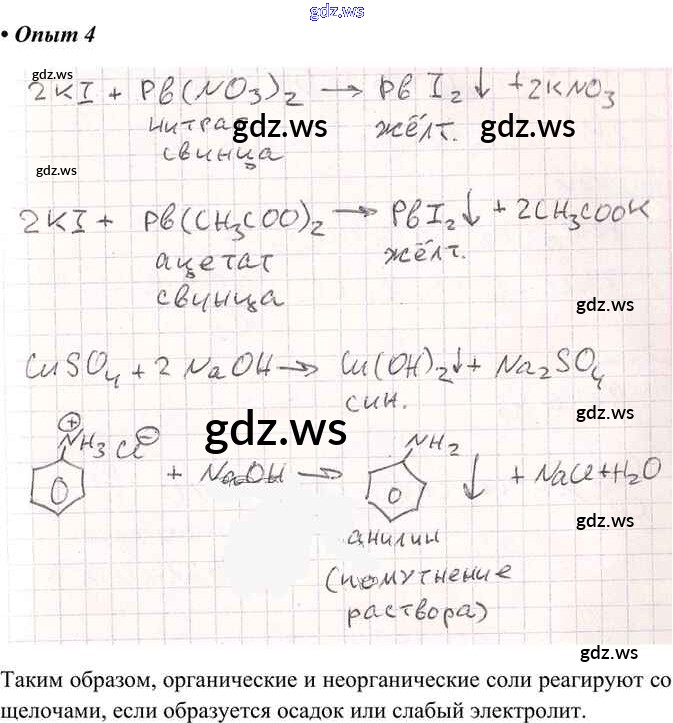 gdz.ws
• Опыт 4
gdz.ws
2KI + Pb(NO3)2 → PbI2↓ + 2KNO3
нитрат gdz.ws жёлт. gdz.ws
gdz.ws свинца
2KI + Pb(CH3COO)2 → PbI2↓ + 2CH3COOK
ацетат жёлт.
свинца gdz.ws
CuSO4 + 2NaOH → Cu(OH)2↓ + Na2SO4
син. gdz.ws
gdz.ws
⊕ NH3 Cl ⊖ + NaOH → NH2 ↓ + NaCl + H2O
gdz.ws
анилин
(помутнение
раствора)
gdz.ws
gdz.ws
Таким образом, органические и неорганические соли реагируют со
щелочами, если образуется осадок или слабый электролит.
gdz.ws